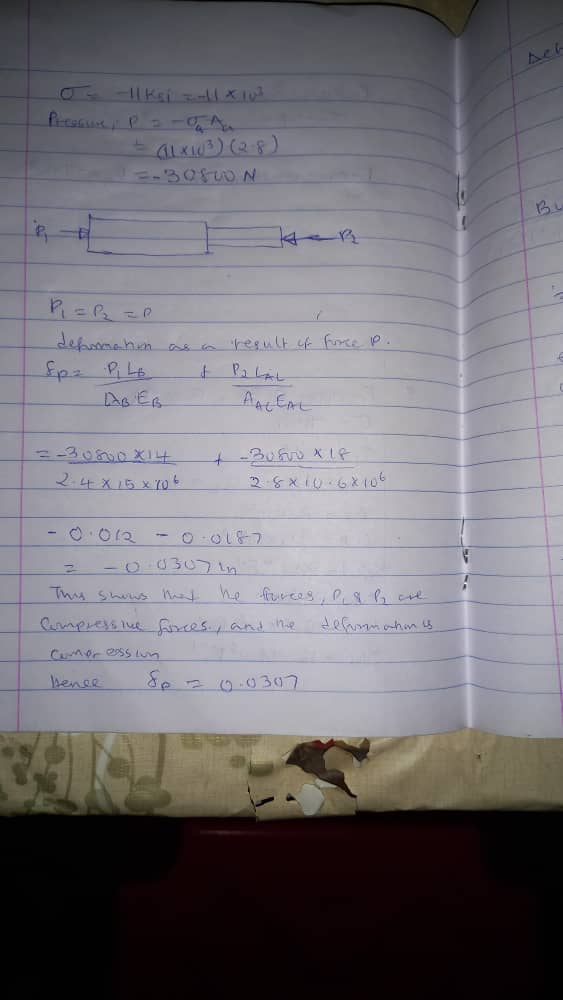 σ = -11Ksi = -11 × 10³
Pressure, P = -σₐAₐ
= (11×10³)(2.8)
= -30800 N
P₁ P₂
P₁ = P₂ = P
deformation as a result of force P.
δp = P₁LB / AB·EB + P₂LAL / AALEAL
= -30800 × 14 / 2.4 × 15 × 10⁶ + -30800 × 18 / 2.8 × 10.6 × 10⁶
- 0.012 - 0.0187
= - 0.0307 in
This shows that the forces, P₁ & P₂ are
compressive forces, and the deformation is
compression
Hence δp = 0.0307